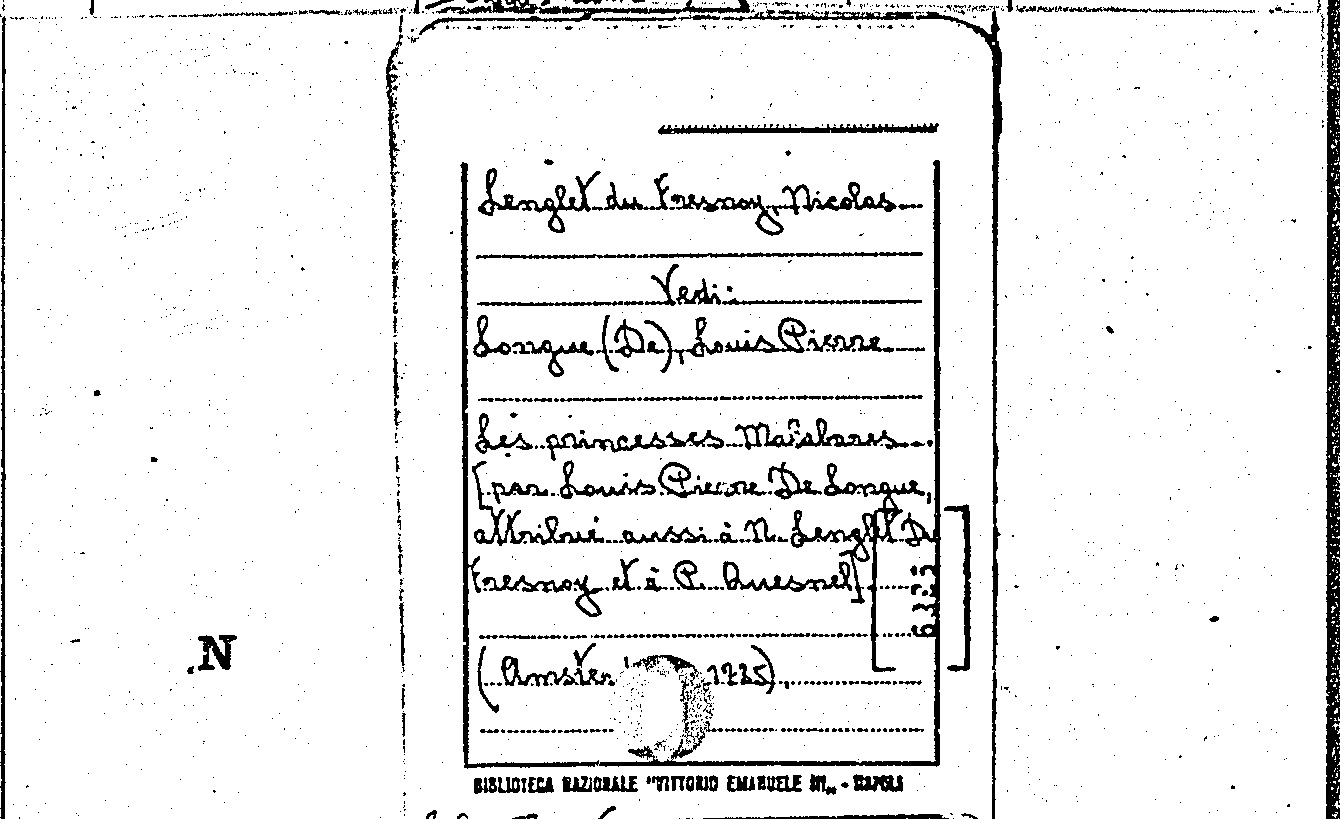 Lenglet du Fresnoy, Nicolas
Vedi:
Longue (De), Louis Pierre
Les princesses Malabares...
[par Louis Pierre De Longue,
attribué aussi à N. Lenglet Du
Fresnoy et à P. Quesnel]
6323
1735).
N
BIBLIOTECA NAZIONALE "VITTORIO EMANUELE III„ - NAPOLI